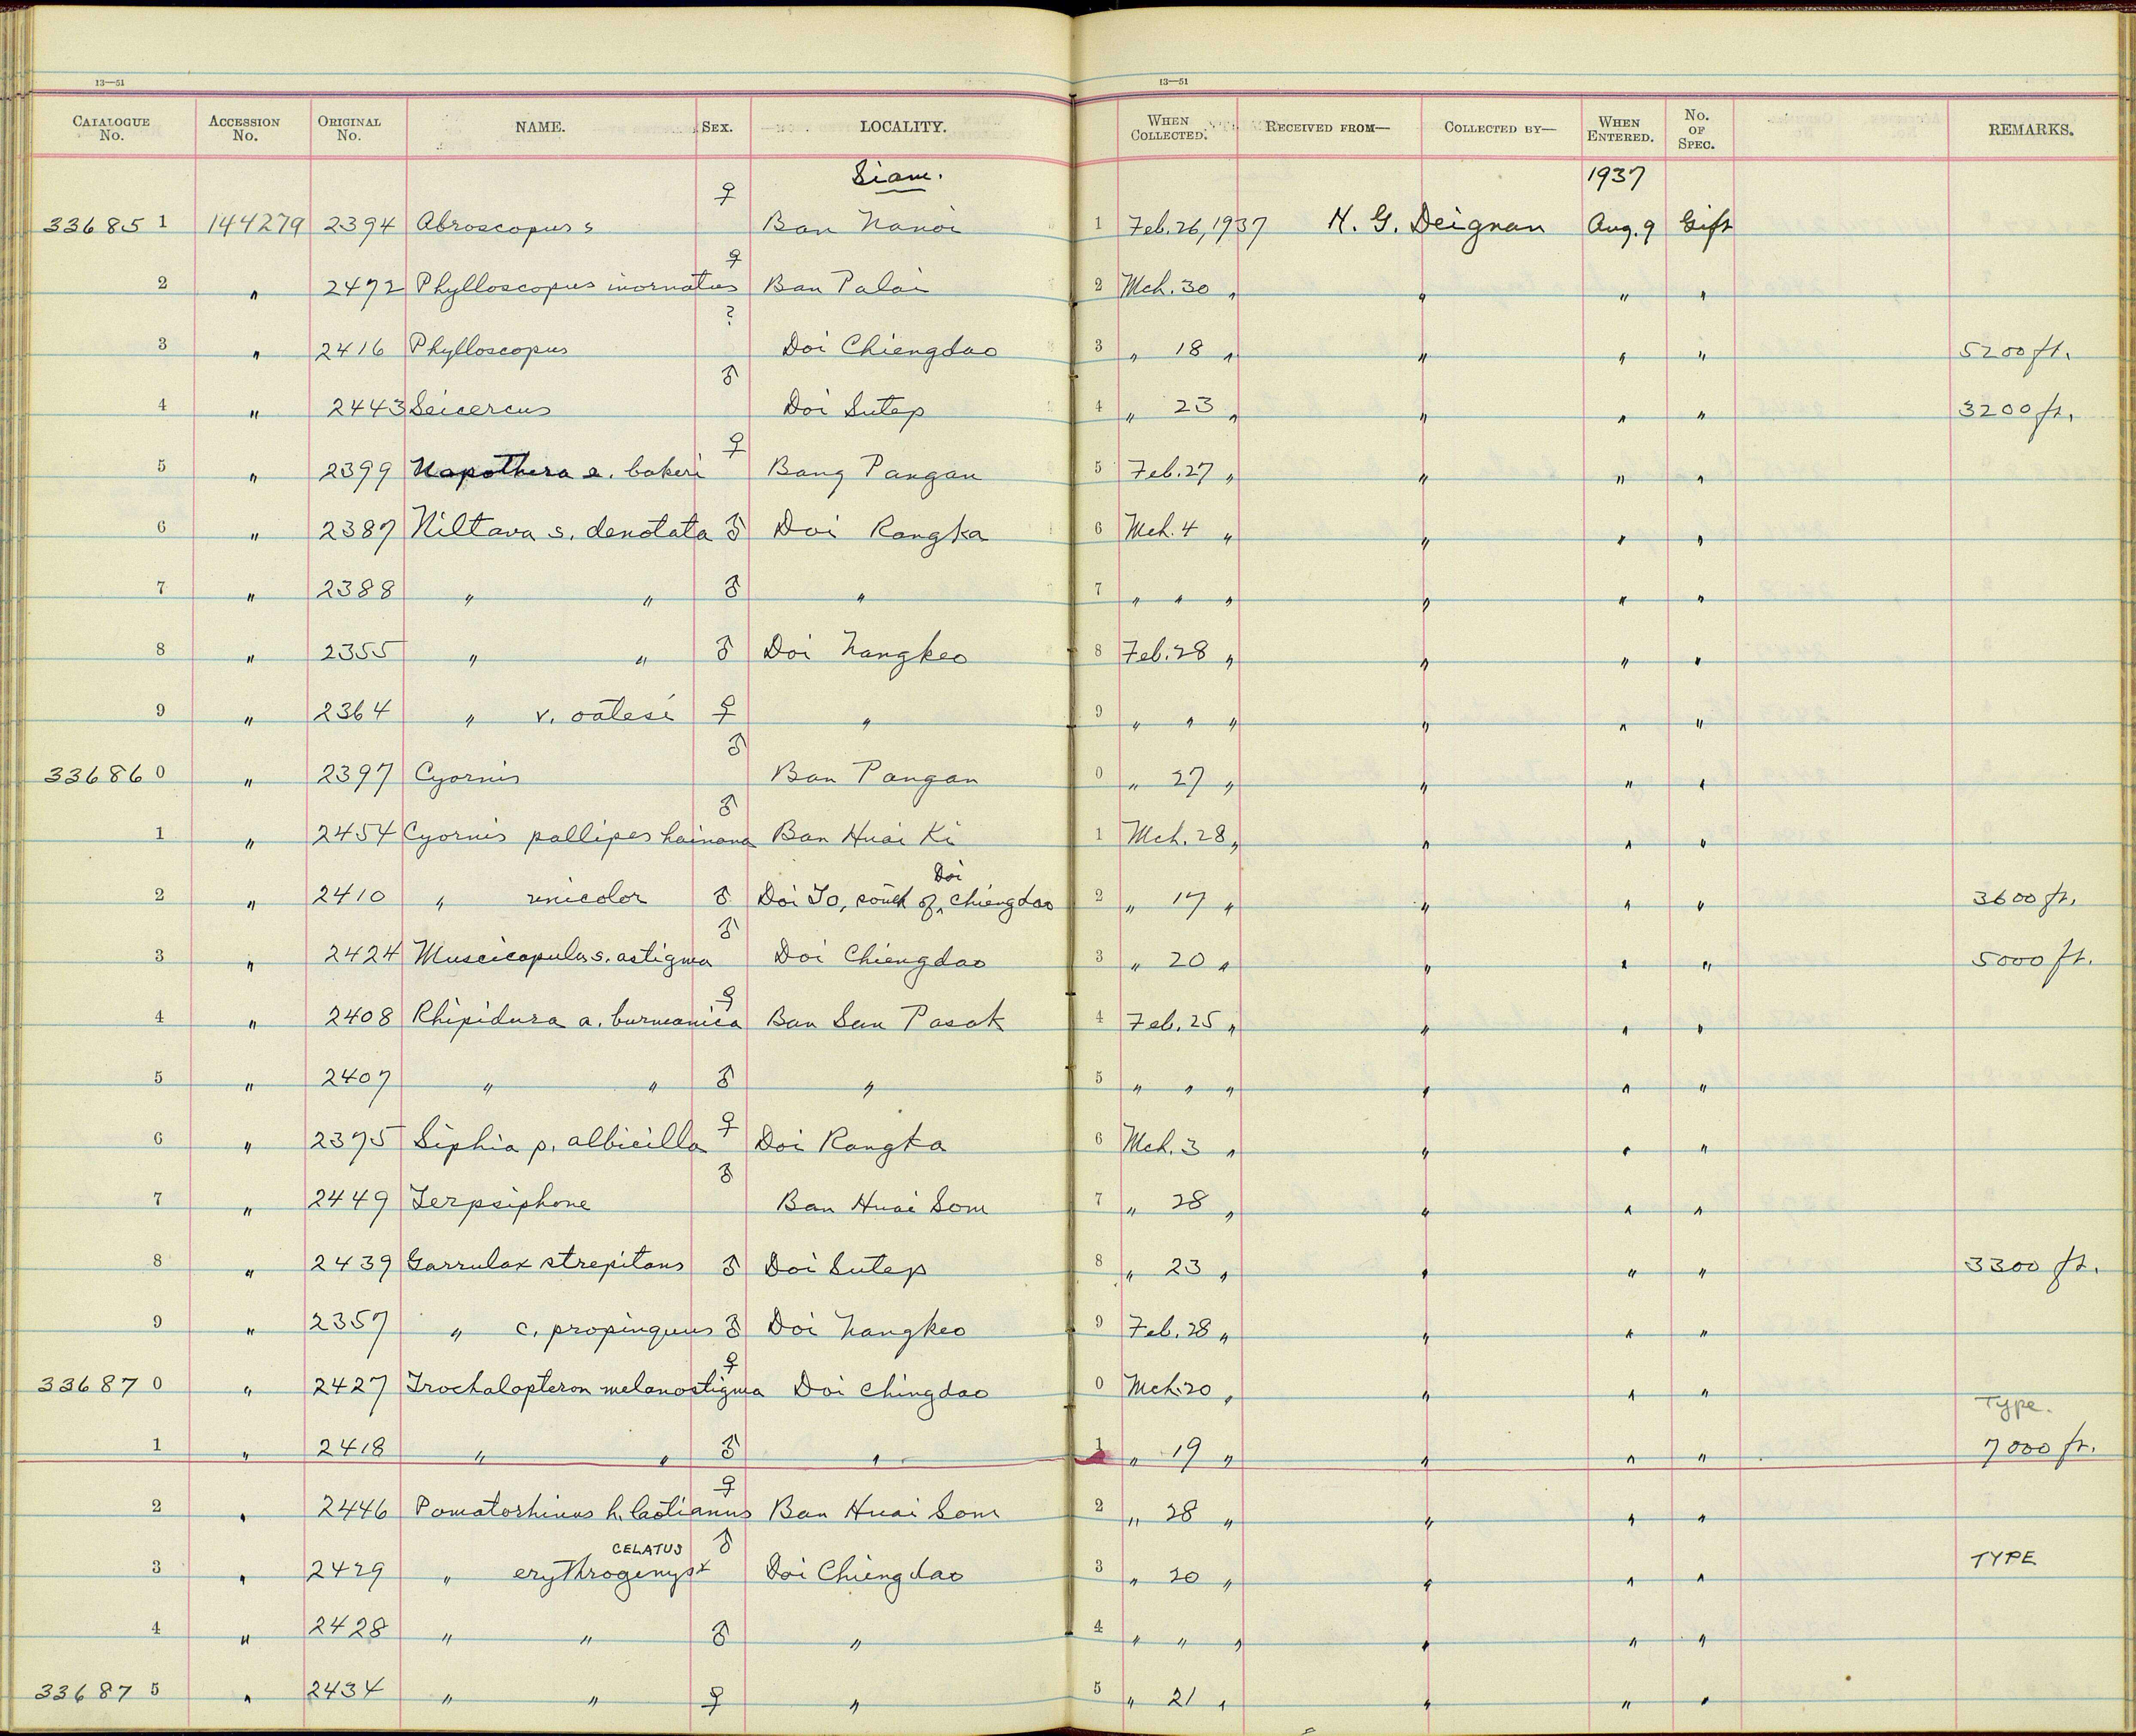 13—51 13—51
CATALOGUE No. ACCESSION No. ORIGINAL No. NAME. SEX. LOCALITY. WHEN COLLECTED. RECEIVED FROM— COLLECTED BY— WHEN ENTERED. No. OF SPEC. REMARKS.
Siam. 1937
33685 1 144279 2394 Abroscopus s ♀ Ban Nanoi 1 Feb. 26, 1937 H. G. Deignan Aug. 9 Gift
2 " 2472 Phylloscopus inornatus ♀ Ban Palai 2 Mch. 30 " " " "
3 " 2416 Phylloscopus ? Doi Chiengdao 3 " 18 " " " " 5200 ft.
4 " 2443 Seicercus ♂ Doi Sutep 4 " 23 " " " " 3200 ft.
5 " 2399 Napothera e. bakeri ♀ Bang Pangan 5 Feb. 27 " " " "
6 " 2387 Niltava s. denotata ♂ Doi Rangka 6 Mch. 4 " " " "
7 " 2388 " " ♂ " 7 " " " " " "
8 " 2355 " " ♂ Doi Nangkeo 8 Feb. 28 " " " "
9 " 2364 " v. oatesi ♀ " 9 " " " " " "
33686 0 " 2397 Cyornis ♂ Ban Pangan 0 " 27 " " " "
1 " 2454 Cyornis pallipes hainana ♂ Ban Huai Ki 1 Mch. 28 " " " "
Doi
2 " 2410 " unicolor ♂ Doi To, south of ^ Chiengdao 2 " 17 " " " " 3600 ft.
3 " 2424 Muscicapula s. astigma ♂ Doi Chiengdao 3 " 20 " " " " 5000 ft.
4 " 2408 Rhipidura a. burmanica ♀ Ban San Pasak 4 Feb. 25 " " " "
5 " 2407 " " ♂ " 5 " " " " " "
6 " 2375 Siphia p. albicilla ♀ Doi Rangka 6 Mch. 3 " " " "
7 " 2449 Terpsiphone ♂ Ban Huai Som 7 " 28 " " " "
8 " 2439 Garrulax strepitans ♂ Doi Sutep 8 " 23 " " " " 3300 ft.
9 " 2357 " c. propinquus ♂ Doi Nangkeo 9 Feb. 28 " " " "
33687 0 " 2427 Trochalopteron melanostigma ♀ Doi Chingdao 0 Mch. 20 " " " "
Type.
1 " 2418 " " ♂ " 1 " 19 " " " " 7000 ft.
2 " 2446 Pomatorhinus h. laotianus ♀ Ban Huai Som 2 " 28 " " " "
CELATUS
3 " 2429 " erythrogenys x ♂ Doi Chiengdao 3 " 20 " " " " TYPE
4 " 2428 " " ♂ " 4 " " " " " "
33687 5 " 2434 " " ♀ " 5 " 21 " " " "